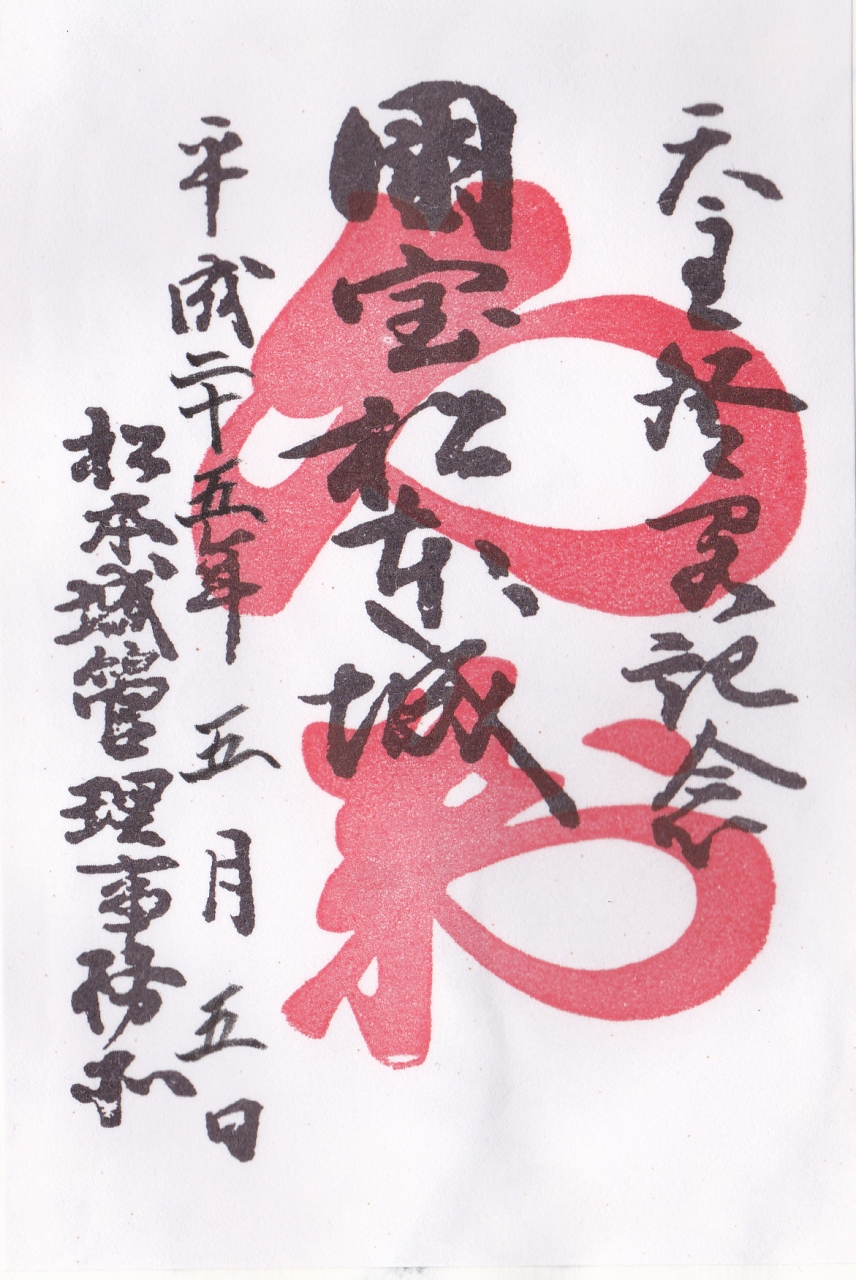 天主登閣記念
國宝松本城
平成二十五年五月五日
松本城管理事務所